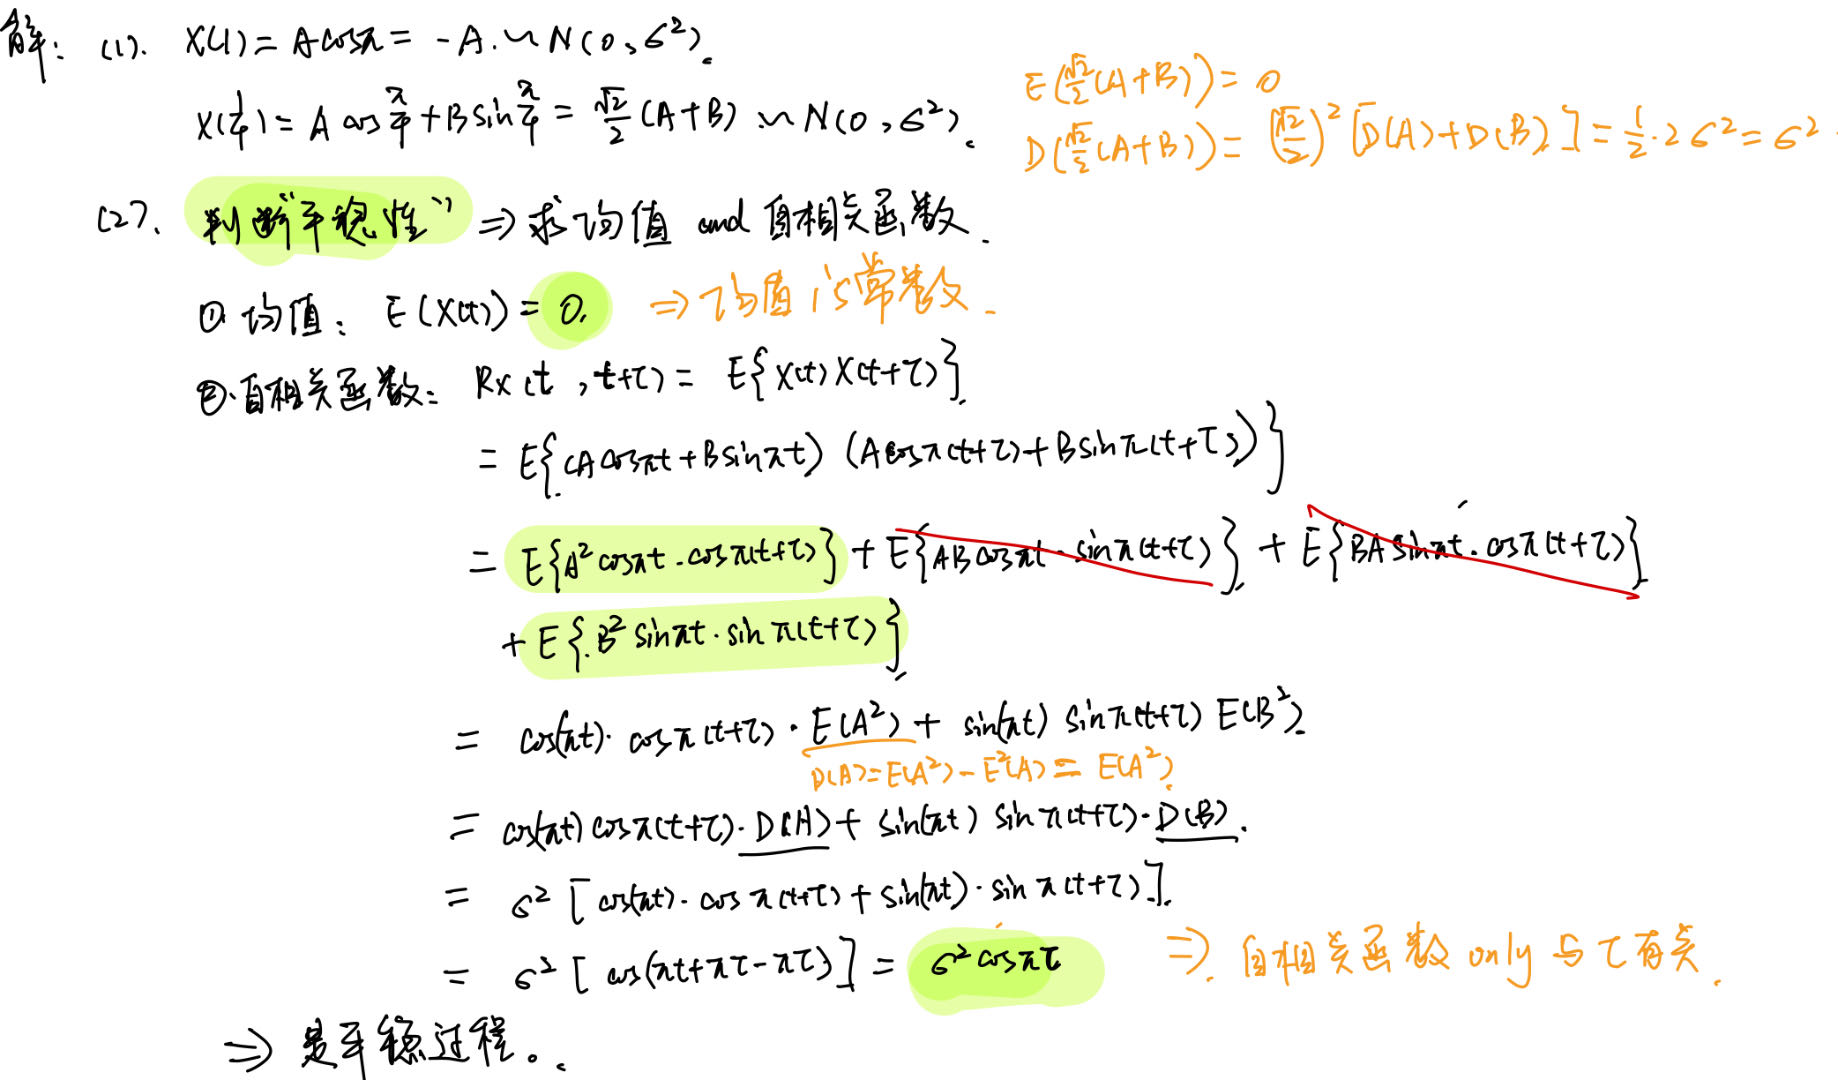 解: (1). X(1) = A cosπ = -A. ~ N(0, σ²).
X(1/4) = A cos π/4 + B sin π/4 = √2/2 (A+B) ~ N(0, σ²).
E(√2/2(A+B)) = 0
D(√2/2(A+B)) = (√2/2)² [D(A)+D(B)] = 1/2·2σ² = σ²
(2). 判断"平稳性" ⇒ 求均值 and 自相关函数.
① 均值: E(X(t)) = 0. ⇒ 均值is常数.
②.自相关函数: Rx(t, t+τ) = E{X(t)X(t+τ)}.
= E{(A cosπt + B sinπt) (A cosπ(t+τ) + B sinπ(t+τ))}
= E{A² cosπt · cosπ(t+τ)} + E{AB cosπt · sinπ(t+τ)} + E{BA sinπt · cosπ(t+τ)}
+ E{B² sinπt · sinπ(t+τ)}
= cos(πt) · cosπ(t+τ) · E(A²) + sin(πt) sinπ(t+τ) E(B²).
D(A) = E(A²) - E²(A) = E(A²).
= cos(πt) cosπ(t+τ) · D(A) + sin(πt) sinπ(t+τ) · D(B).
= σ² [cos(πt) · cosπ(t+τ) + sin(πt) · sinπ(t+τ)].
= σ² [cos(πt+πτ-πτ)] = σ² cosπτ ⇒. 自相关函数 only 与τ有关.
⇒ 是平稳过程。